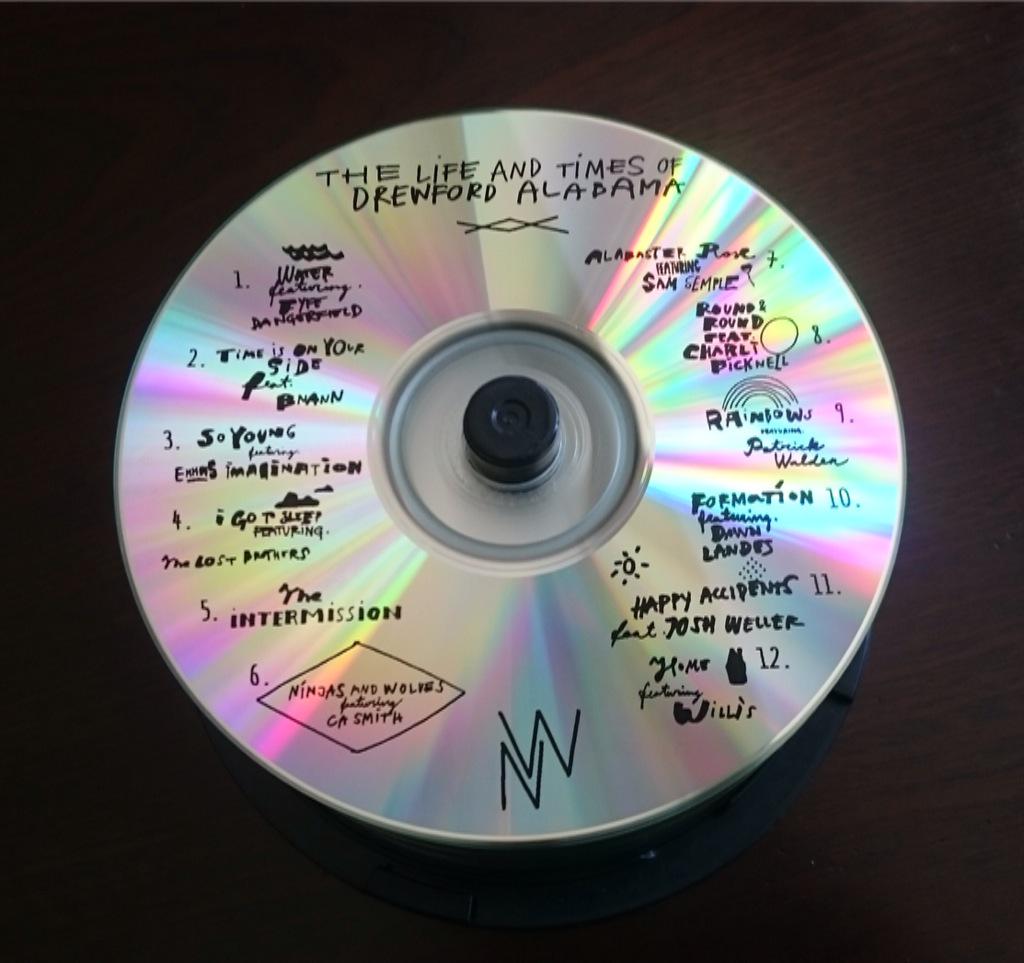 THE LIFE AND TIMES OF
DREWFORD ALABAMA
1. WATER
featuring
FYFE
DANGERFIELD
2. TIME iS ON YOUR
SiDE
feat.
BNANN
3. SO YOUNG
featuring
EMMAS iMAGiNATiON
4. i GOT SLEEP
FEATURING.
The LOST BROTHERS
5. The
iNTERMISSiON
6. NiNJAS AND WOLVES
featuring
CA SMiTH
ALABASTER Rose 7.
FEATURING
SAM SEMPLE
ROUND &
ROUND
FEAT. 8.
CHARLI
BICKNELL
RAiNBOWS 9.
FEATURING.
Patrick
Walden
FORMATiON 10.
featuring.
DAWN
LANDES
HAPPY ACCIDENTS 11.
feat. JOSH WELLER
HOME 12.
featuring
WiLLiS
NW